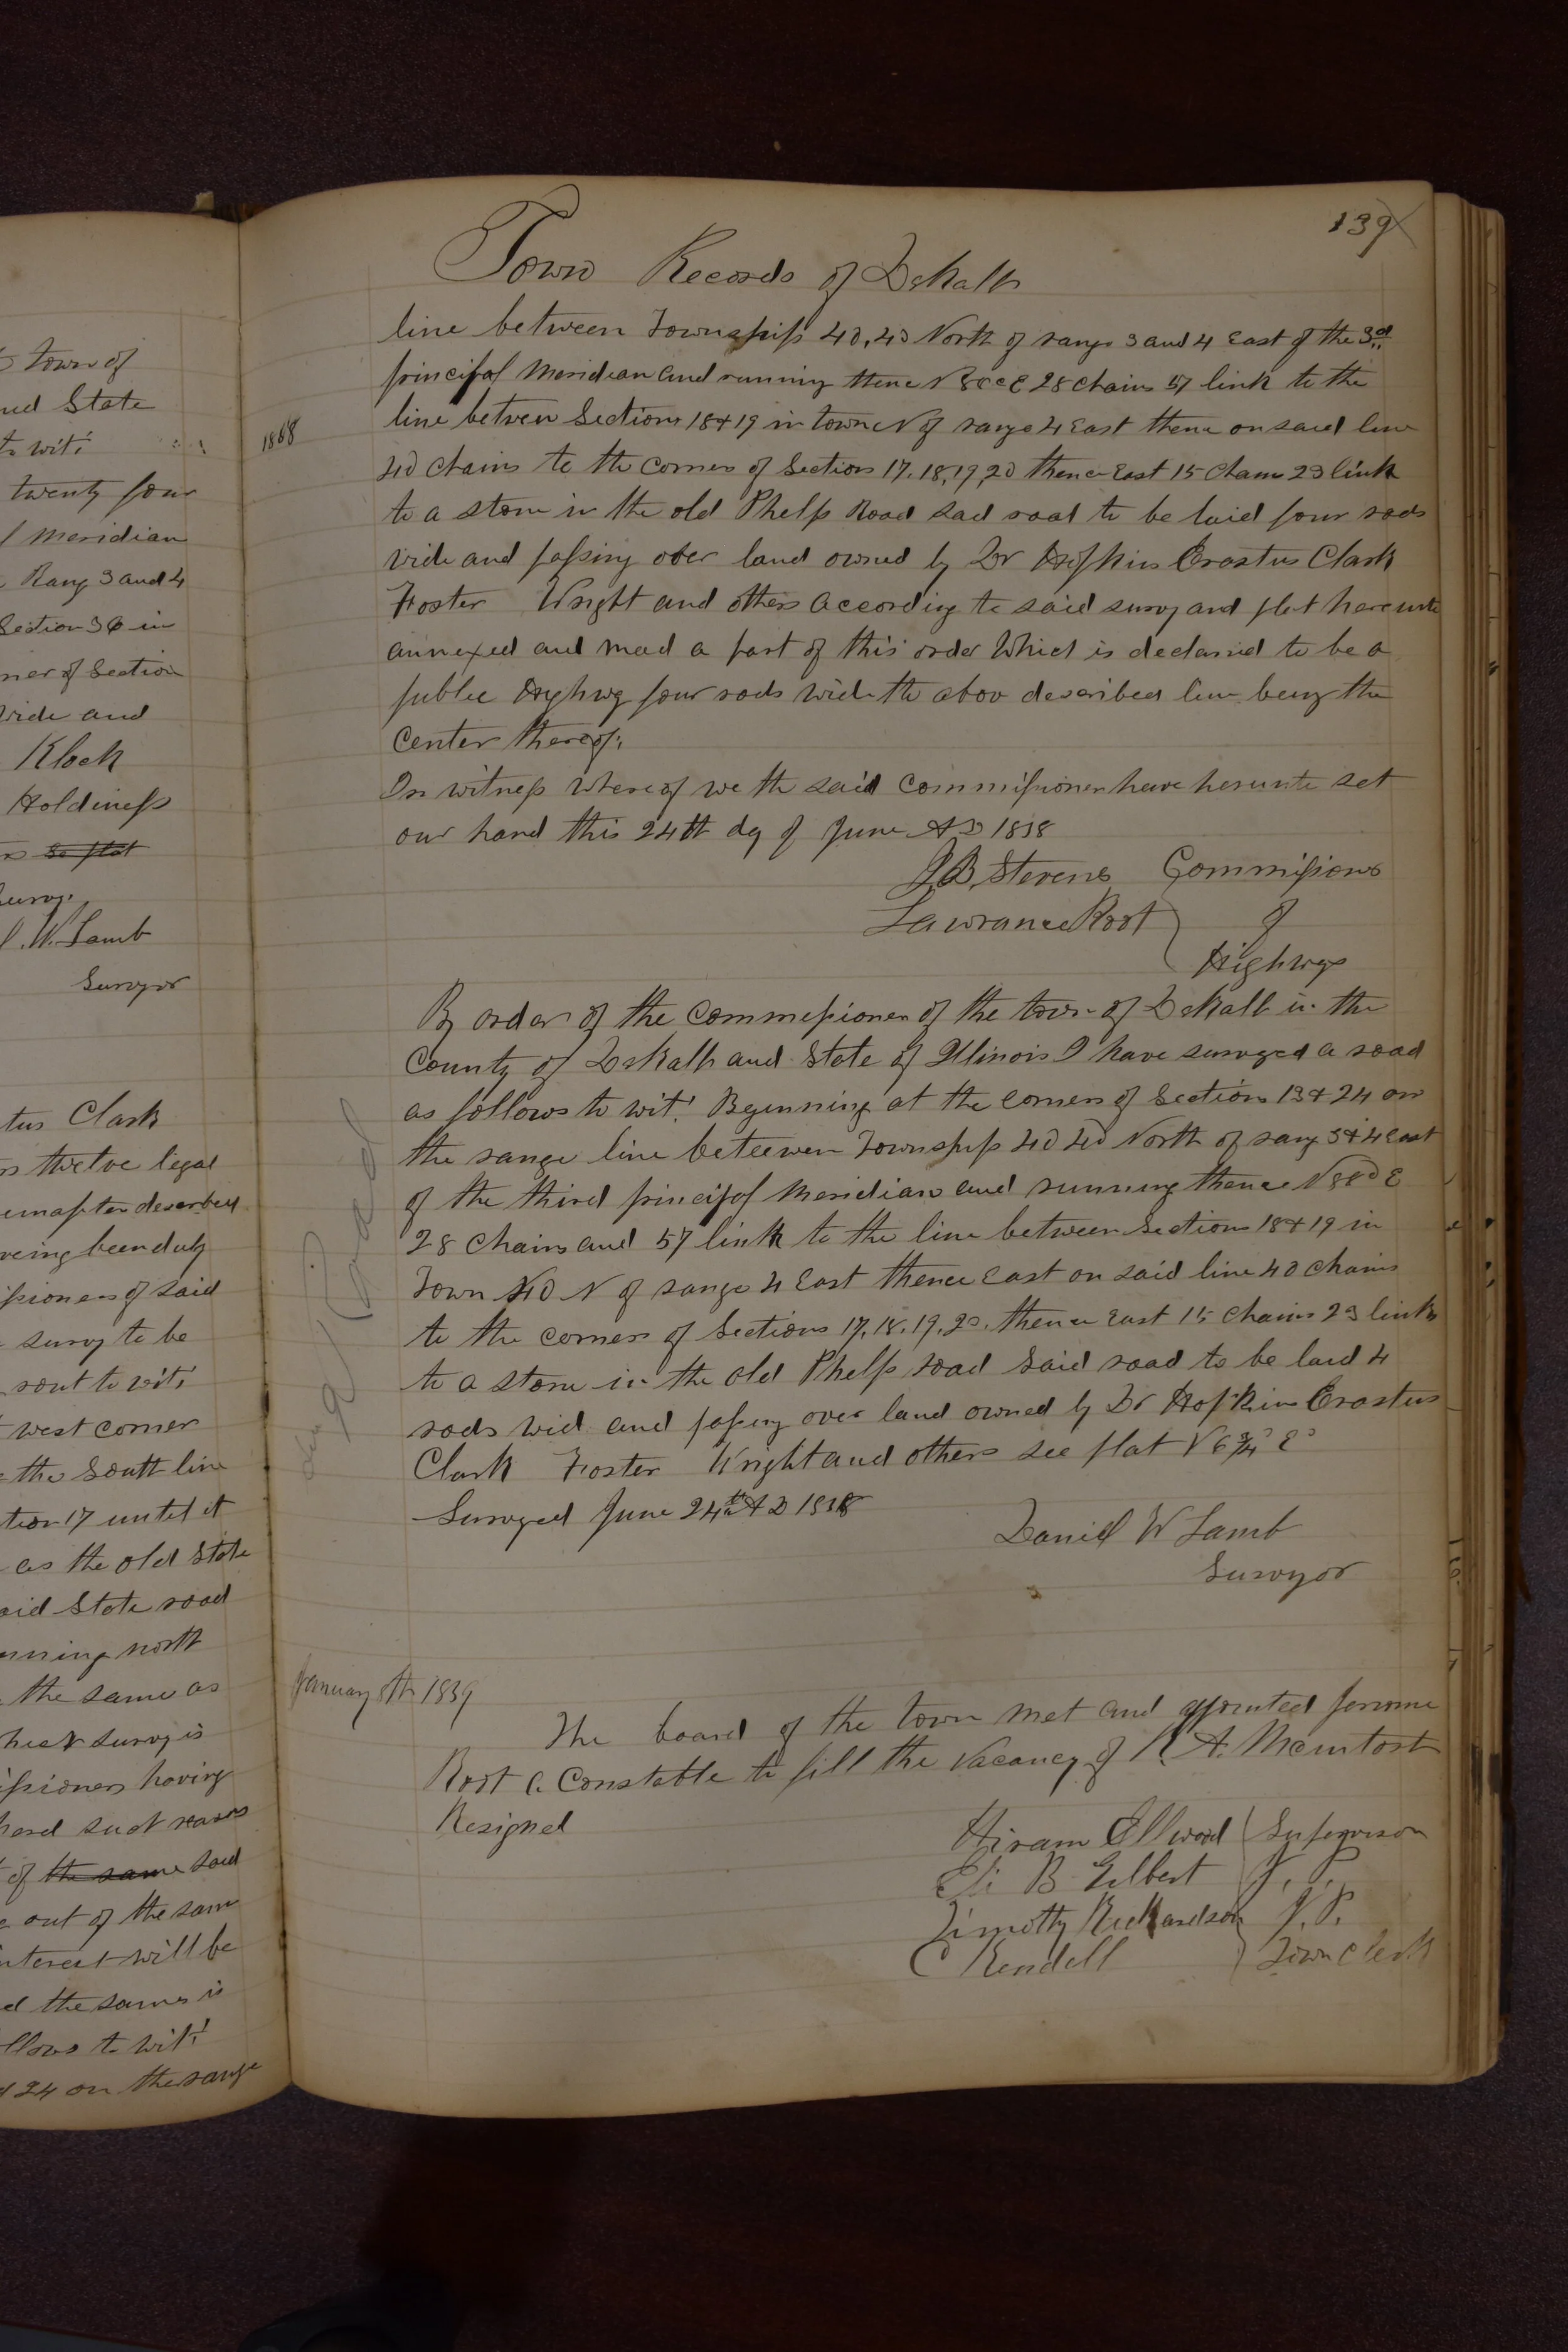 139
Town Records of DeKalb
line between Townships 40, 40 North of range 3 and 4 East of the 3rd
principal Meridian and running thence N E 28 chains 57 link to the
1868
line betwen Sections 18 & 19 in town N of range 4 East thence on said line
40 chains to the corner of Section 17. 18, 19, 20 thence East 15 Chains 23 link
to a stone in the old Phelps Road said road to be laid four rods
wide and passing over land owned by Dr Hopkins Erastus Clark
Foster Wright and others according to said survy and plat hereunto
annexed and mad a part of this order Which is declared to be a
public Highwy four rods wide the abov described line being the
center thereof;
In witness Whereof we the said Commissioner have herunto set
our hand this 24th dy of June AD 1858
J B Stevens Commissions
Lawrance Root of
Highwys
By order of the Commissioner of the town of DeKalb in the
County of DeKalb and State of Illinois I have surveyed a road
as follows to wit! Beginning at the corners of Section 13 & 24 on
the range line beteween Townships 40 40 North of rang 3 & 4 East
of the third principal Meridian and running thence N E
28 Chains and 57 link to the line between Sections 18 & 19 in
Town 40 N of range 4 East thence East on said line 40 chains
to the corners of Sections 17. 18. 19. 20. thence East 15 chains 23 links
to a stone in the old Phelps road said road to be laid 4
rods wid and passing over land owned by Dr Hopkins Erastus
Clark Foster Wright and others see plat N 6 3/4° E
Surveyed June 24th AD 1858
Daniel W Lamb
Survyor
January 8th 1859
The board of the town met and appointed Jerome
Root a Constable to fill the Vacancy of A. Mcintosh
Resigned
Hiram Ellwood Supervison
Eli B Gilbert J. P.
Timothy Richardson J. P.
C Kendell Town Clerk
town of
and State
to wit;
twenty four
Meridian
Rang 3 and 4
Section 36 in
corner of Section
wide and
Klock
Holdiness
so plat
survy.
W. Lamb
Survyor
Clark
twelve legal
described
being been duly
of said
survy to be
rout to wit;
west corner
the South line
Section 17 until it
as the old State
said State road
running north
the same as
survy is
having
heard such reasons
of the same said
out of the same
interest will be
and the same is
follows to wit!
24 on the range